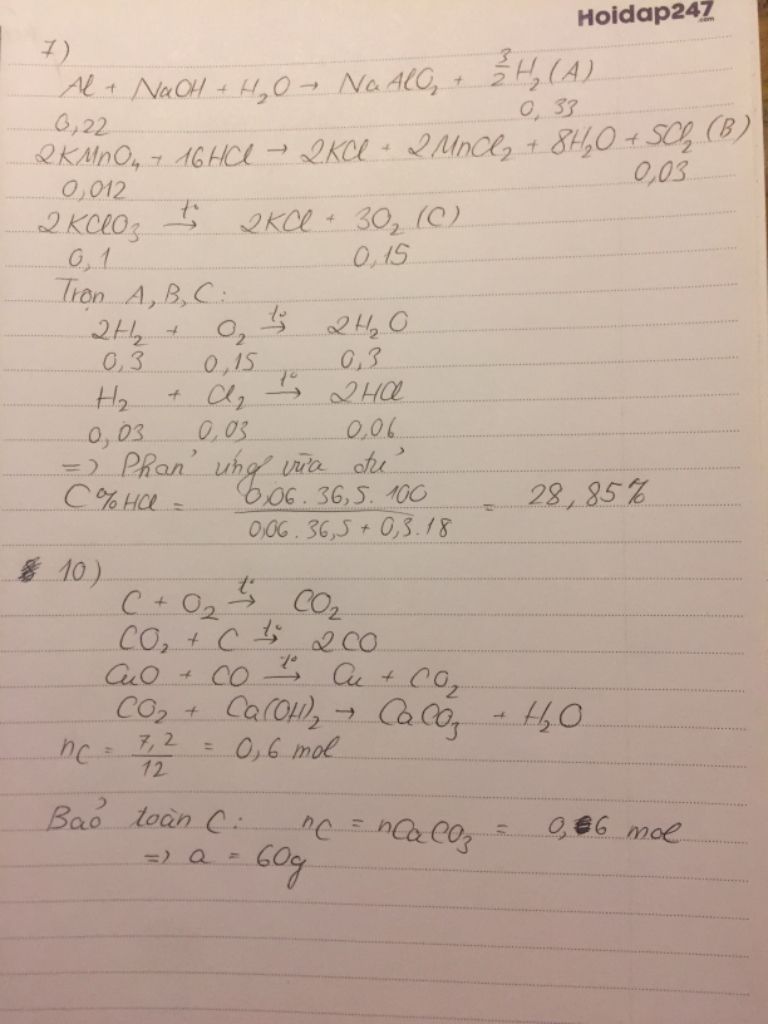 Hoidap247
.com
7)
Al + NaOH + H₂O → NaAlO₂ + 3/2 H₂ (A)
0,22 0,33
2KMnO₄ + 16HCl → 2KCl + 2MnCl₂ + 8H₂O + 5Cl₂ (B)
0,012 0,03
2KClO₃ t°→ 2KCl + 3O₂ (C)
0,1 0,15
Trộn A, B, C:
2H₂ + O₂ t°→ 2H₂O
0,3 0,15 0,3
H₂ + Cl₂ t°→ 2HCl
0,03 0,03 0,06
=> Phản ứng vừa đủ
C%HCl = 0,06.36,5.100 / 0,06.36,5 + 0,3.18 = 28,85%
10)
C + O₂ t°→ CO₂
CO₂ + C t°→ 2CO
CuO + CO t°→ Cu + CO₂
CO₂ + Ca(OH)₂ → CaCO₃ + H₂O
nC = 7,2/12 = 0,6 mol
Bảo toàn C: nC = nCaCO₃ = 0,6 mol
=> a = 60g